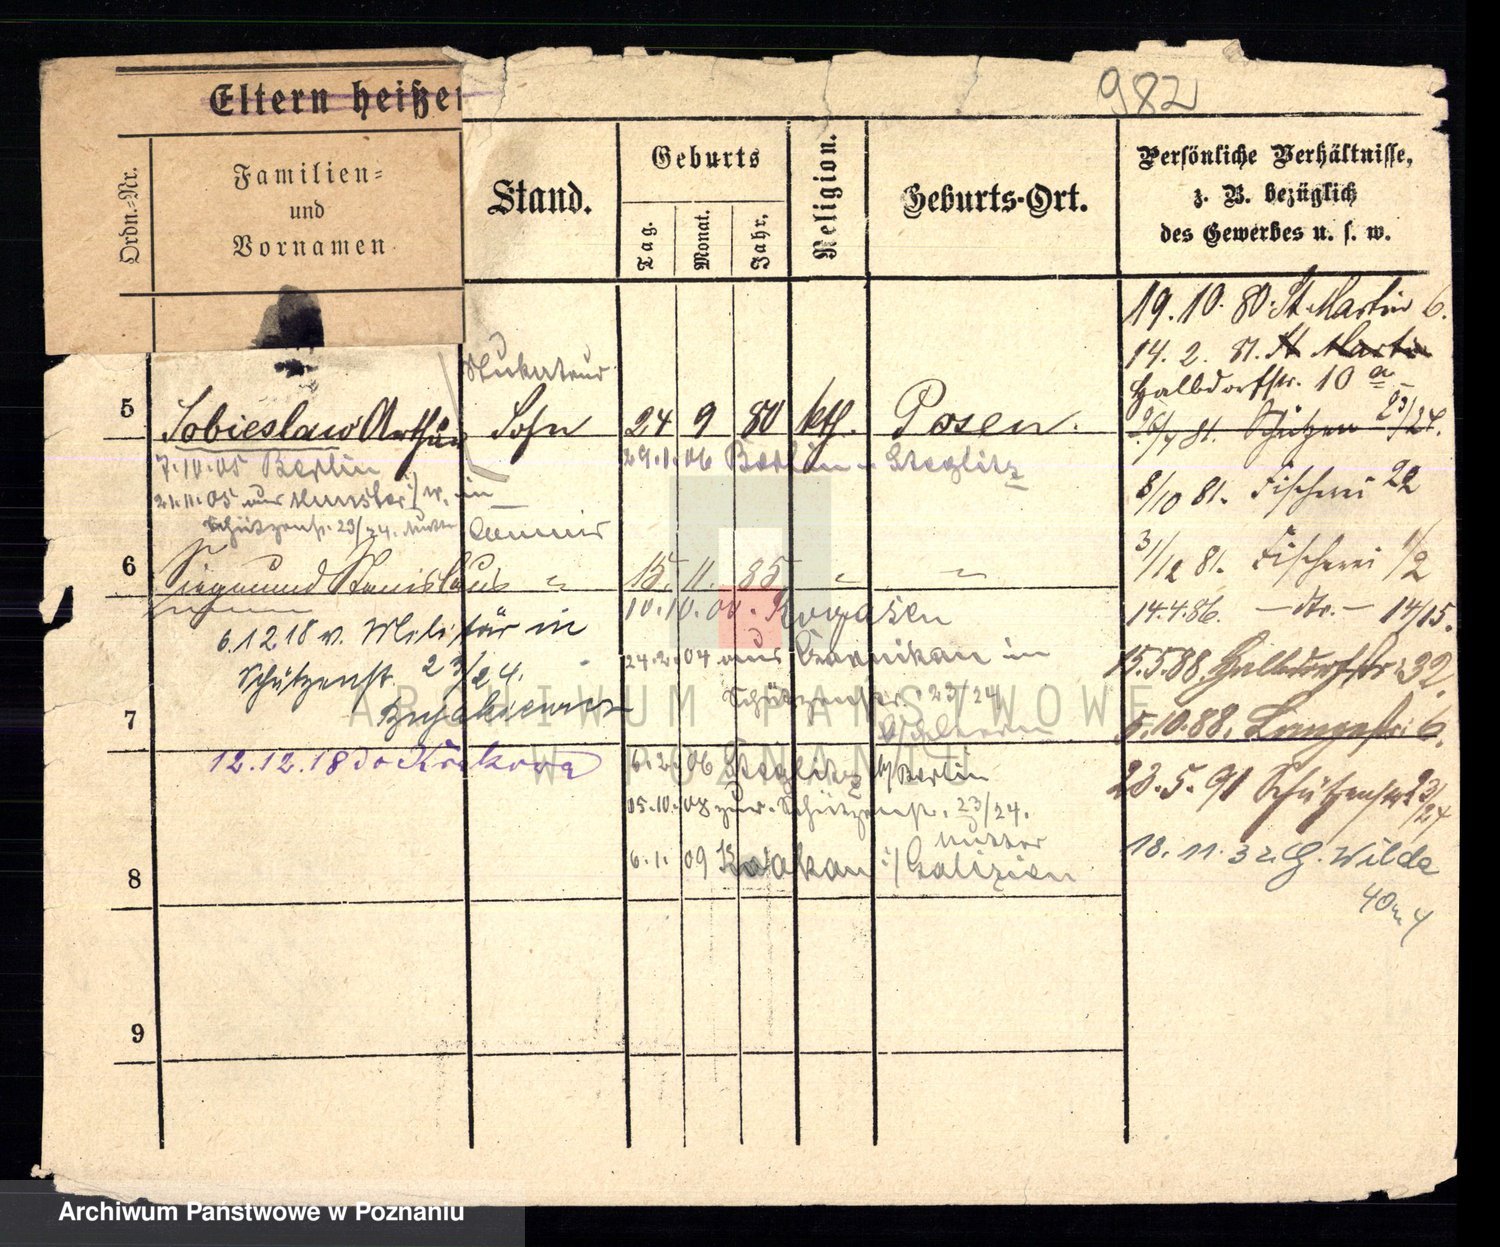 982
Eltern heißen
Ordn.-Nr.
Familien-
und
Vornamen
Stand.
Geburts
Tag.
Monat.
Jahr.
Religion.
Geburts-Ort.
Persönliche Verhältnisse,
z. B. bezüglich
des Gewerbes u. s. w.
19. 10. 80. St Martin 6.
14. 2. 81. St Martin
Halbdorfstr. 10 a
Stukateur
5 Sobieslaw Arthur Sohn 24 9 80 kth. Posen.
81. Schützen 23/24.
7.10.05 Berlin
29.1.06 Berlin - Steglitz
21.11.05 aus in
Schützenstr. 23/24. Mutter
8/10 81. Fischerei 22
Commis
3/12 81. Fischerei 1/2
6 Siegmund Stanislaus " 15. 11. 85. " "
10.10.00. Rogasen
14.4.86. — dto. — 14/15.
6.12.18 v. Militär in
Schützenstr. 23/24.
24.2.04 aus Czarnikau in
Schützenstr. 23/24
15.5.88. Halbdorfstr. 32.
7
5.10.88. Langestr. 6.
12.12.18 do Krakowa
6.2.06 Steglitz b/Berlin
05.10.08 zur. Schützenstr. 23/24.
Mutter
23.5.91 Schützenstr 23/24
8
6.1.09 Krakau i/ Galizien
18. 11. 32. G. Wilda
40 m 4
9
ARCHIWUM PAŃSTWOWE
W POZNANIU
Archiwum Państwowe w Poznaniu